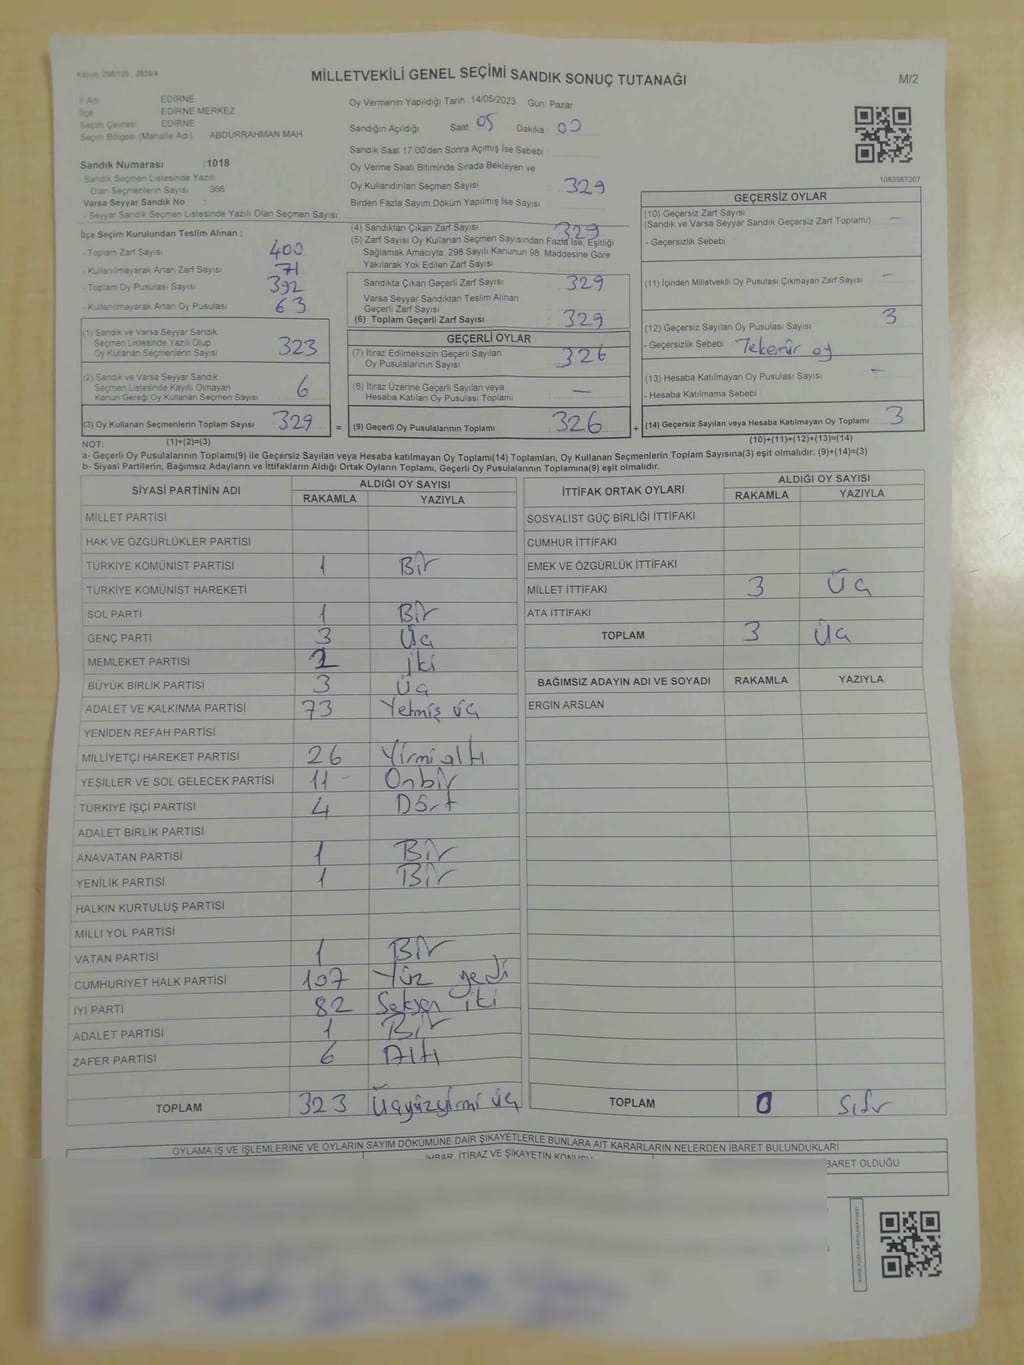 Kanun: 298/105 , 2839/4
MİLLETVEKİLİ GENEL SEÇİMİ SANDIK SONUÇ TUTANAĞI
M/2
İl Adı EDİRNE
İlçe EDİRNE MERKEZ
Seçim Çevresi EDİRNE
Seçim Bölgesi (Mahalle Adı) ABDURRAHMAN MAH.
Sandık Numarası :1018
- Sandık Seçmen Listesinde Yazılı
Olan Seçmenlerin Sayısı 366
Varsa Seyyar Sandık No :
- Seyyar Sandık Seçmen Listesinde Yazılı Olan Seçmen Sayısı:
Oy Vermenin Yapıldığı Tarih :14/05/2023 Gün: Pazar
Sandığın Açıldığı Saat 05 Dakika 00
Sandık Saat 17:00'den Sonra Açılmış İse Sebebi
Oy Verme Saati Bitiminde Sırada Bekleyen ve
Oy Kullandırılan Seçmen Sayısı 329
Birden Fazla Sayım Döküm Yapılmış İse Sayısı
1083567207
İlçe Seçim Kurulundan Teslim Alınan ;
- Toplam Zarf Sayısı 400
- Kullanılmayarak Artan Zarf Sayısı 71
- Toplam Oy Pusulası Sayısı 392
- Kullanılmayarak Artan Oy Pusulası 63
(1) Sandık ve Varsa Seyyar Sandık
Seçmen Listesinde Yazılı Olup
Oy Kullanan Seçmenlerin Sayısı 323
(2) Sandık ve Varsa Seyyar Sandık
Seçmen Listesinde Kayıtlı Olmayan
Kanun Gereği Oy Kullanan Seçmen Sayısı 6
(3) Oy Kullanan Seçmenlerin Toplam Sayısı 329 =
(4) Sandıktan Çıkan Zarf Sayısı 329
(5) Zarf Sayısı Oy Kullanan Seçmen Sayısından Fazla İse, Eşitliği
Sağlamak Amacıyla, 298 Sayılı Kanunun 98. Maddesine Göre
Yakılarak Yok Edilen Zarf Sayısı
Sandıkta Çıkan Geçerli Zarf Sayısı 329
Varsa Seyyar Sandıktan Teslim Alınan
Geçerli Zarf Sayısı
(6) Toplam Geçerli Zarf Sayısı 329
GEÇERLİ OYLAR
(7) İtiraz Edilmeksizin Geçerli Sayılan
Oy Pusulalarının Sayısı 326
(8) İtiraz Üzerine Geçerli Sayılan veya
Hesaba Katılan Oy Pusulası Toplamı —
(9) Geçerli Oy Pusulalarının Toplamı 326 +
GEÇERSİZ OYLAR
(10) Geçersiz Zarf Sayısı
(Sandık ve Varsa Seyyar Sandık Geçersiz Zarf Toplamı) —
- Geçersizlik Sebebi
(11) İçinden Milletvekili Oy Pusulası Çıkmayan Zarf Sayısı —
(12) Geçersiz Sayılan Oy Pusulası Sayısı 3
- Geçersizlik Sebebi Tekerrür oy
(13) Hesaba Katılmayan Oy Pusulası Sayısı —
- Hesaba Katılmama Sebebi
(14) Geçersiz Sayılan veya Hesaba Katılmayan Oy Toplamı 3
NOT: (1)+(2)=(3) (10)+(11)+(12)+(13)=(14)
a- Geçerli Oy Pusulalarının Toplamı(9) ile Geçersiz Sayılan veya Hesaba katılmayan Oy Toplamı(14) Toplamları, Oy Kullanan Seçmenlerin Toplam Sayısına(3) eşit olmalıdır. (9)+(14)=(3)
b- Siyasi Partilerin, Bağımsız Adayların ve İttifakların Aldığı Ortak Oyların Toplamı, Geçerli Oy Pusulalarının Toplamına(9) eşit olmalıdır.
SİYASİ PARTİNİN ADI ALDIĞI OY SAYISI
RAKAMLA YAZIYLA
MİLLET PARTİSİ
HAK VE ÖZGÜRLÜKLER PARTİSİ
TÜRKİYE KOMÜNİST PARTİSİ 1 Bir
TÜRKİYE KOMÜNİST HAREKETİ
SOL PARTİ 1 Bir
GENÇ PARTİ 3 Üç
MEMLEKET PARTİSİ 2 iki
BÜYÜK BİRLİK PARTİSİ 3 Üç
ADALET VE KALKINMA PARTİSİ 73 Yetmiş üç
YENİDEN REFAH PARTİSİ
MİLLİYETÇİ HAREKET PARTİSİ 26 Yirmi altı
YEŞİLLER VE SOL GELECEK PARTİSİ 11 - Onbir
TÜRKİYE İŞÇİ PARTİSİ 4 Dört
ADALET BİRLİK PARTİSİ
ANAVATAN PARTİSİ 1 Bir
YENİLİK PARTİSİ 1 Bir
HALKIN KURTULUŞ PARTİSİ
MİLLİ YOL PARTİSİ
VATAN PARTİSİ 1 Bir
CUMHURİYET HALK PARTİSİ 107 Yüz yedi
İYİ PARTİ 82 Seksen iki
ADALET PARTİSİ 1 Bir
ZAFER PARTİSİ 6 Altı
TOPLAM 323 Üçyüzyirmi üç
İTTİFAK ORTAK OYLARI ALDIĞI OY SAYISI
RAKAMLA YAZIYLA
SOSYALİST GÜÇ BİRLİĞİ İTTİFAKI
CUMHUR İTTİFAKI
EMEK VE ÖZGÜRLÜK İTTİFAKI
MİLLET İTTİFAKI 3 Üç
ATA İTTİFAKI
TOPLAM 3 Üç
BAĞIMSIZ ADAYIN ADI VE SOYADI RAKAMLA YAZIYLA
ERGİN ARSLAN
TOPLAM 0 Sıfır
OYLAMA İŞ VE İŞLEMLERİNE VE OYLARIN SAYIM DÖKÜMÜNE DAİR ŞİKAYETLERLE BUNLARA AİT KARARLARIN NELERDEN İBARET BULUNDUKLARI
İHBAR, İTİRAZ VE ŞİKAYETİN KONUSU
BARET OLDUĞU